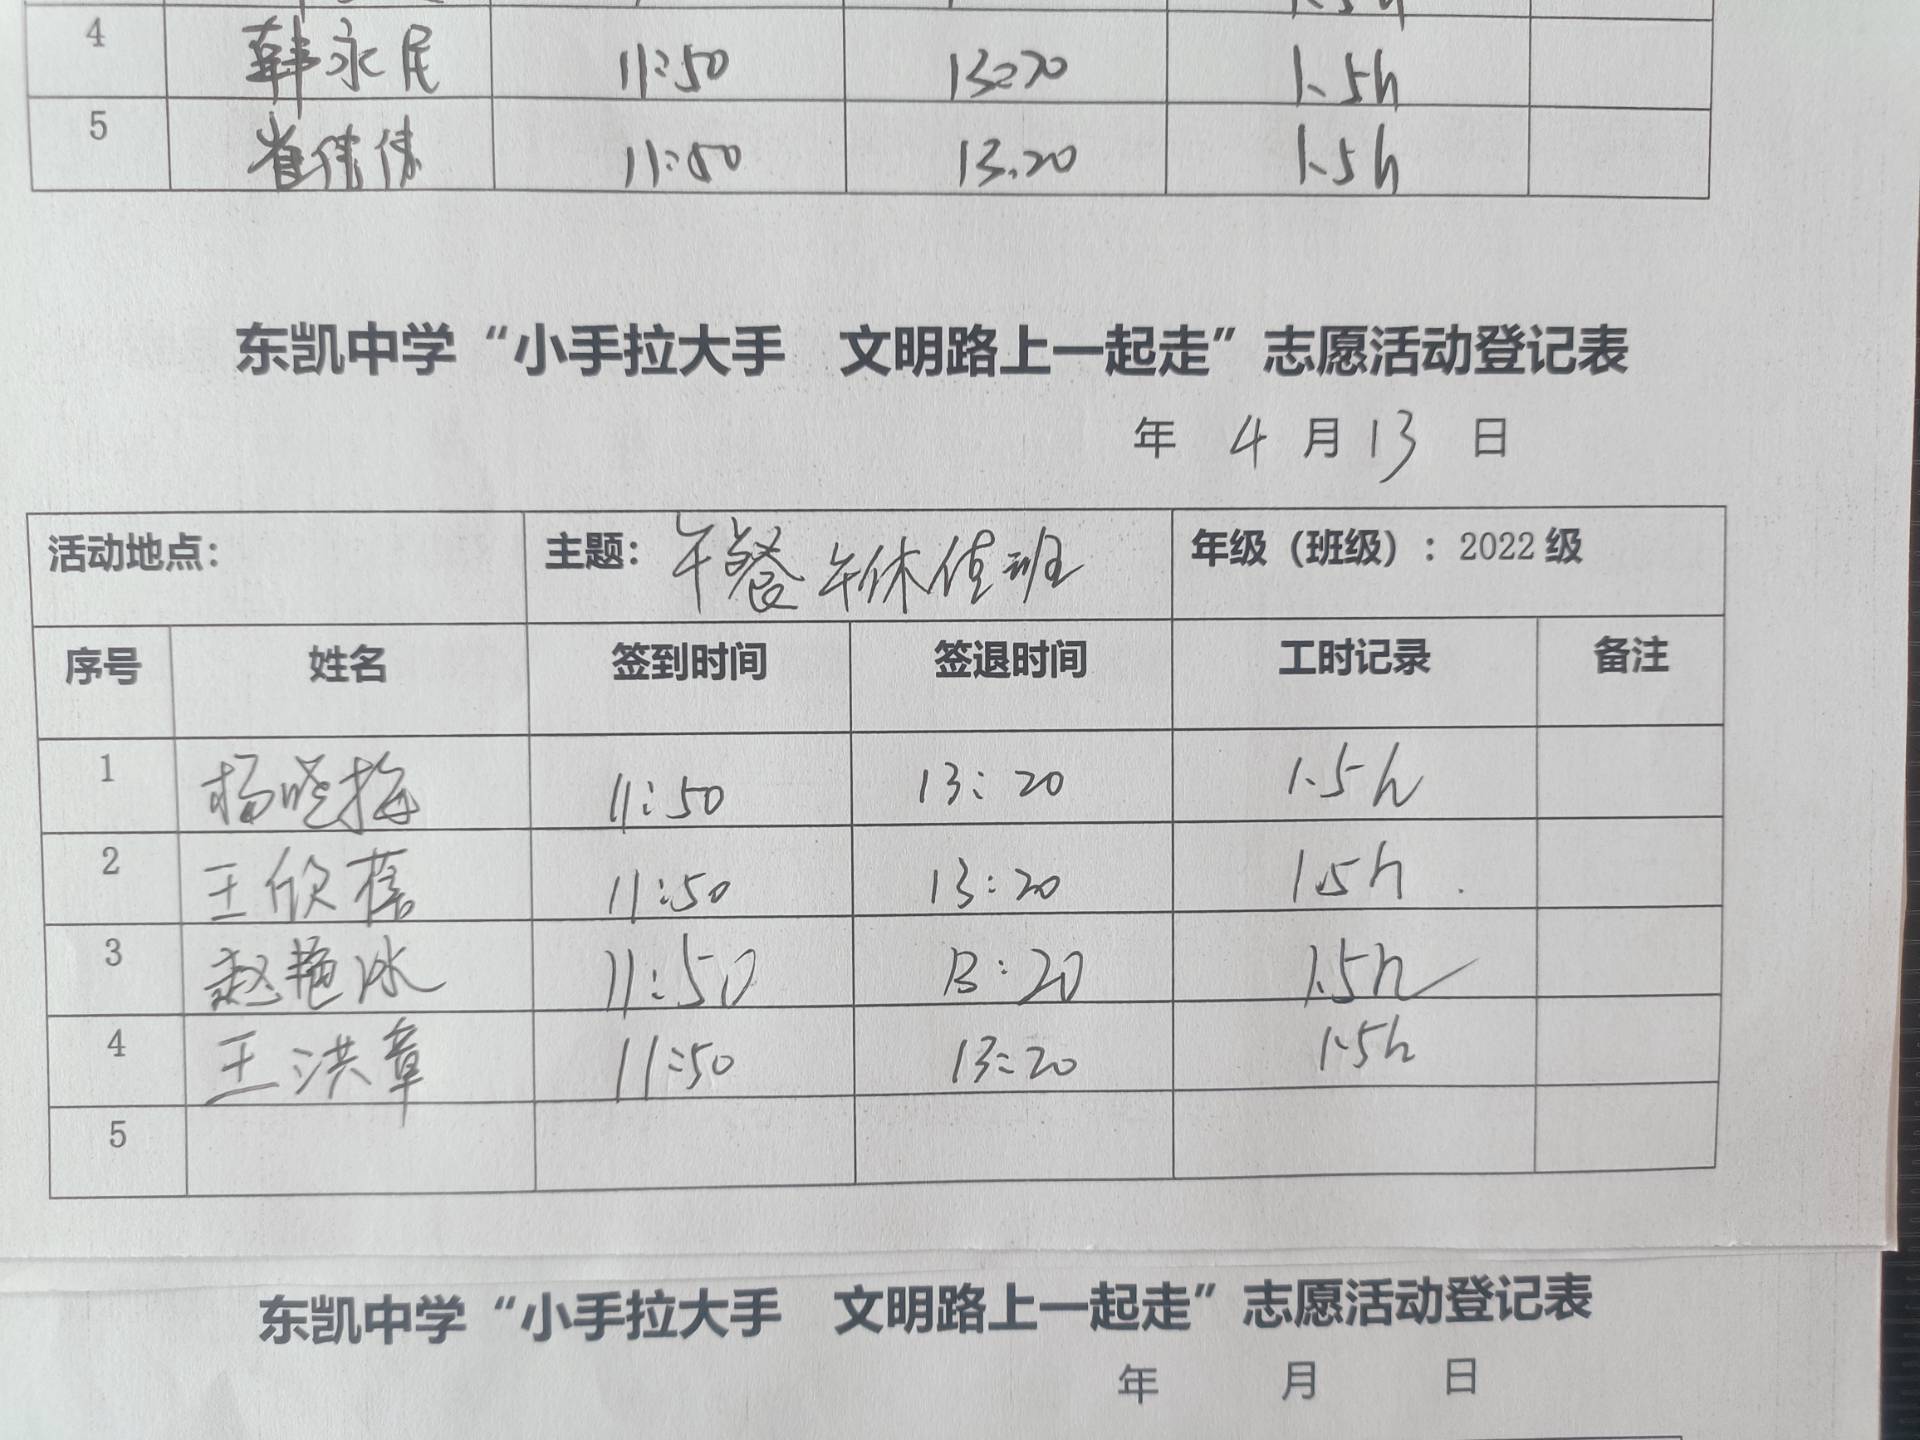 4 韩永民 11:50 13:20 1.5h
5 崔伟伟 11:50 13.20 1.5h
东凯中学“小手拉大手 文明路上一起走”志愿活动登记表
年 4 月 13 日
活动地点： 主题：午餐午休值班 年级（班级）：2022级
序号 姓名 签到时间 签退时间 工时记录 备注
1 杨晓梅 11:50 13:20 1.5h
2 王欣 11:50 13:20 1.5h
3 赵艳冰 11:50 13:20 1.5h
4 王洪章 11:50 13:20 1.5h
5
东凯中学“小手拉大手 文明路上一起走”志愿活动登记表
年 月 日